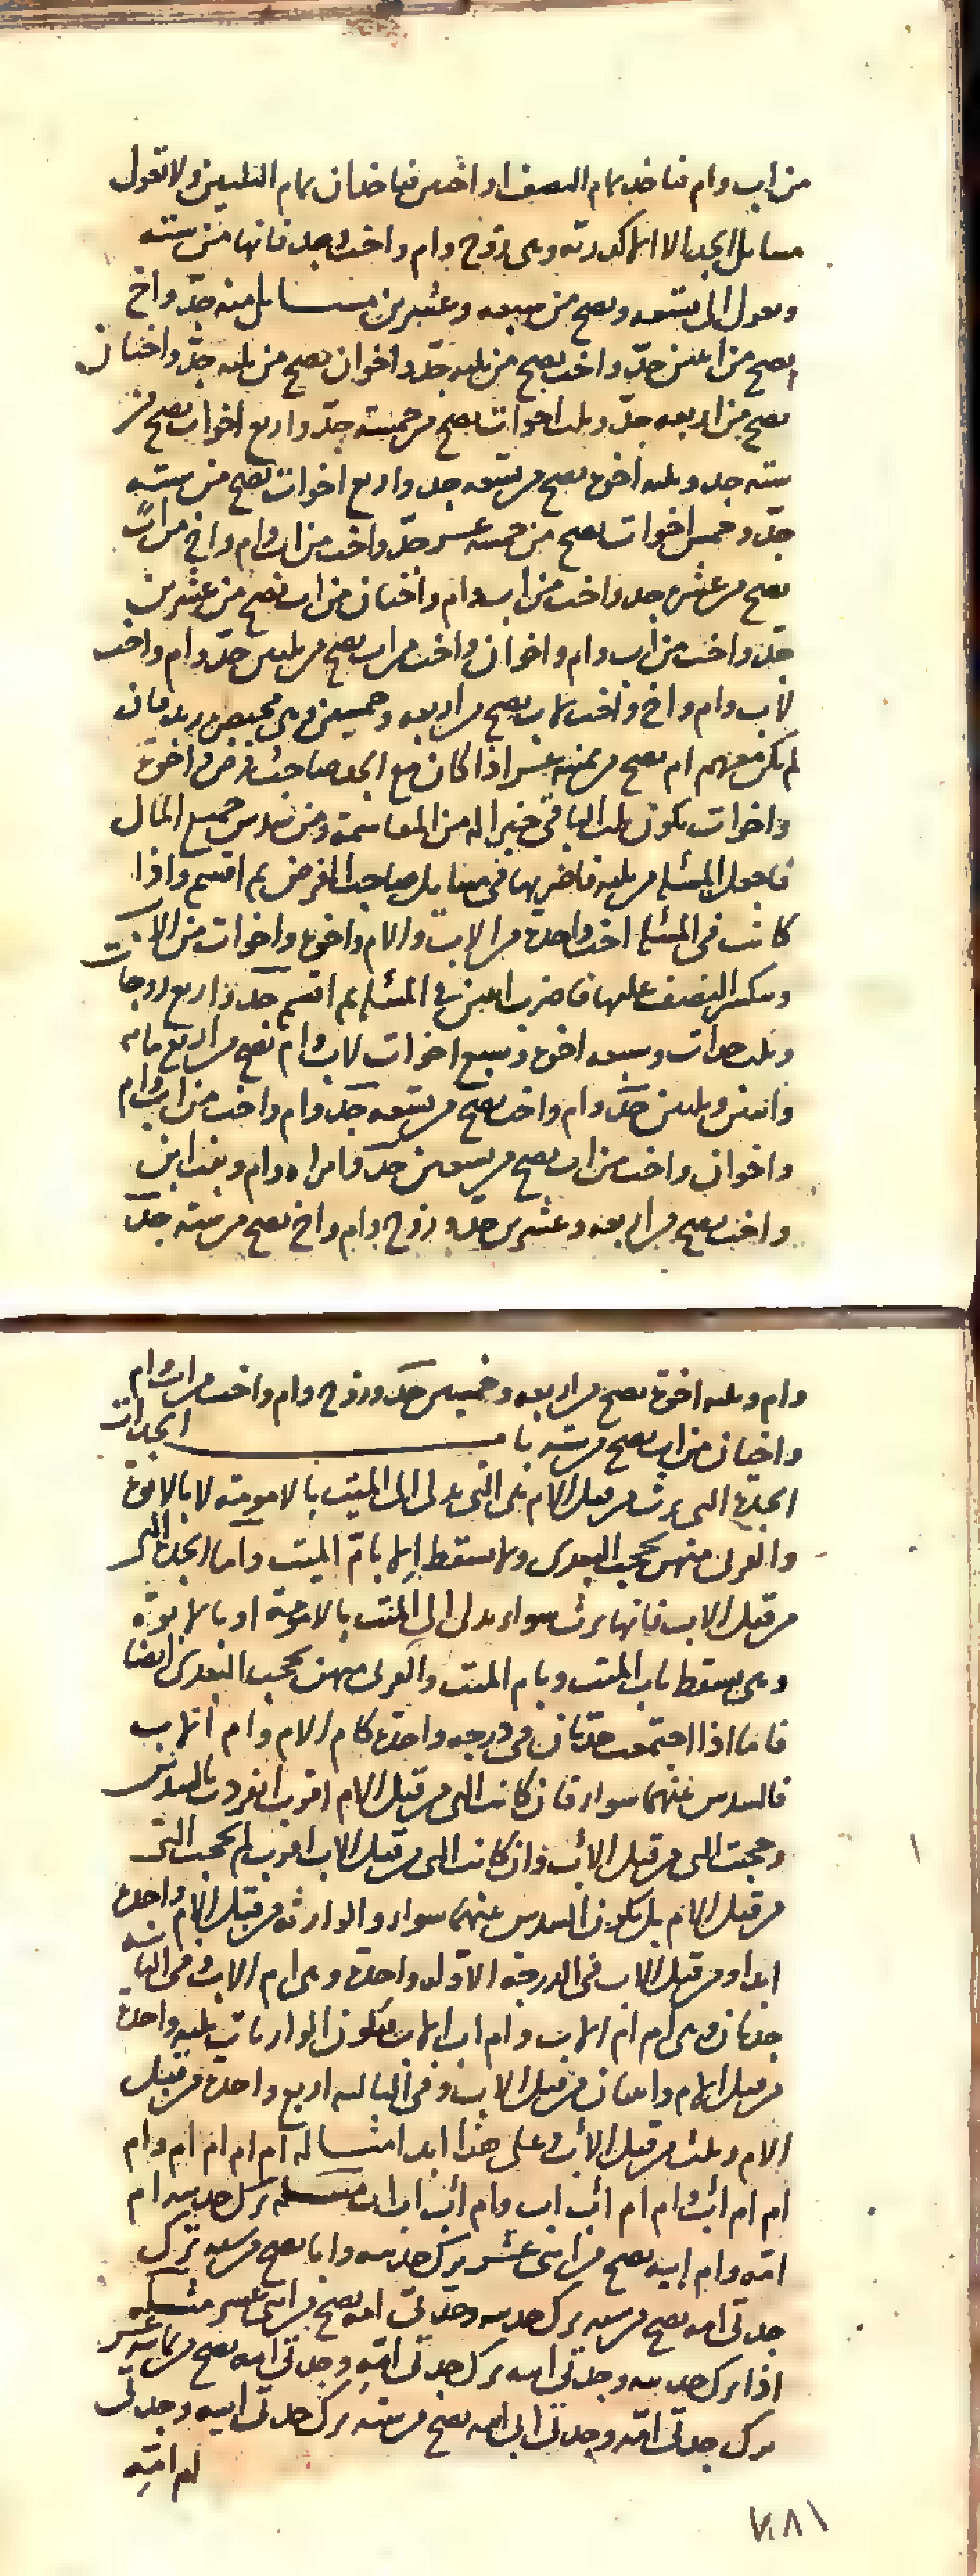 من اب وام فتاخذ تمام النصف او اختين فتاخذان تمام الثلثين ولا تعول
مسايل الجد الا الاكدرية وهي زوج وام واخت وجد فانها من ستة
وتعول الى تسعة وتصح من سبعة وعشرين مسايل منه جد واخ
تصح من اثنين جد واخت تصح من ثلثه جد واخوان تصح من ثلثه جد واختان
تصح من اربعه جد وثلث اخوات تصح من خمسة جد واربع اخوات تصح من
ستة جد وثلثه اخوة تصح من تسعه جد واربع اخوات تصح من ستة
جد وخمس اخوات تصح من خمسة عشر جد واخت من اب وام واخ من اب
تصح من عشرة جد واخت من اب وام واختان من اب تصح من عشرين
جد واخت من اب وام واخوان واخت من اب تصح من ثلثين جد وام واخت
لاب وام واخ واخت لاب تصح من اربعه وخمسين وهي مختصرة زيد فان
لم يكن معهم ام تصح من ثمنية عشر اذا كان مع الجد صاحب فرض واخوة
واخوات يكون ثلث الباقي خير اله من المقاسمة ومن سدس جميع المال
فاجعل المسئلة من ثلثه فاضربها في مسايل صاحب الفرض ثم اقسم واذا
كانت في المسئلة اخت واحدة من الاب والام واخوة واخوات من الاب
وينكسر النصف عليها فاضرب اثنين في المسئلة ثم اقسم جد واربع زوجات
وثلث جدات وسبعه اخوة وسبع اخوات لاب وام تصح من اربع مايه
واثنين وثلثين جد وام واخت تصح من تسعه جد وام واخت من اب وام
واخوان واخت من اب تصح من تسعين جد وامراه وام وبنت ابن
واخت تصح من اربعه وعشرين جد وزوج وام واخ تصح من ستة جد
وام وثلثه اخوة تصح من اربعه وخمسين جد وزوج وام واخت من اب وام
واختان من اب تصح من ستة باب الجدات
الجدة التي ترث من قبل الام هي التي تدلى الى الميت بالامومة لا بالابوة
والقربى منهن تحجب البعدى ولا تسقط الا بام الميت واما الجدة التي
من قبل الاب فانها ترث سواء تدلى الى الميت بالامومة او بالابوة
وهي تسقط باب الميت وبام الميت والقربى منهن تحجب البعدى ايضا
فاما اذا اجتمعت جدتان في درجه واحدة كام الام وام الاب
فالسدس بينهما سواء فان كانت التي من قبل الام اقرب انفردت بالسدس
وحجبت التي من قبل الاب وان كانت التي من قبل الاب اقرب لم تحجب التي
من قبل الام بل يكون السدس بينهما سواء والوارثة من قبل الام واحدة
ابدا ومن قبل الاب في الدرجة الاوله واحدة وهي ام الاب وفي الثانية
جدتان وهي ام ام الاب وام اب الاب فتكون الوارثات ثلثه واحدة
من قبل الام واثنتان من قبل الاب وفي الثالثه اربع واحدة من قبل
الام وثلث من قبل الاب وعلى هذا ابدا مثاله ام ام ام ام وام
ام ام اب وام ام اب اب وام اب اب اب مسئلة ترك جدتيه ام
امه وام ابيه تصح من اثنى عشر ترك جدتيه وابا تصح من ستة ترك
جدتى امه تصح من ستة ترك جدتيه وجدتى امه تصح من اثنى عشر مسئله
اذا ترك جدتيه وجدتى ابيه ترك جدتى امه وجدتى ابيه تصح من ثمانيه عشر
ترك جدتى امه وجدتى ابى امه تصح من ستة ترك جدتى ابيه وجدتى
ام امه